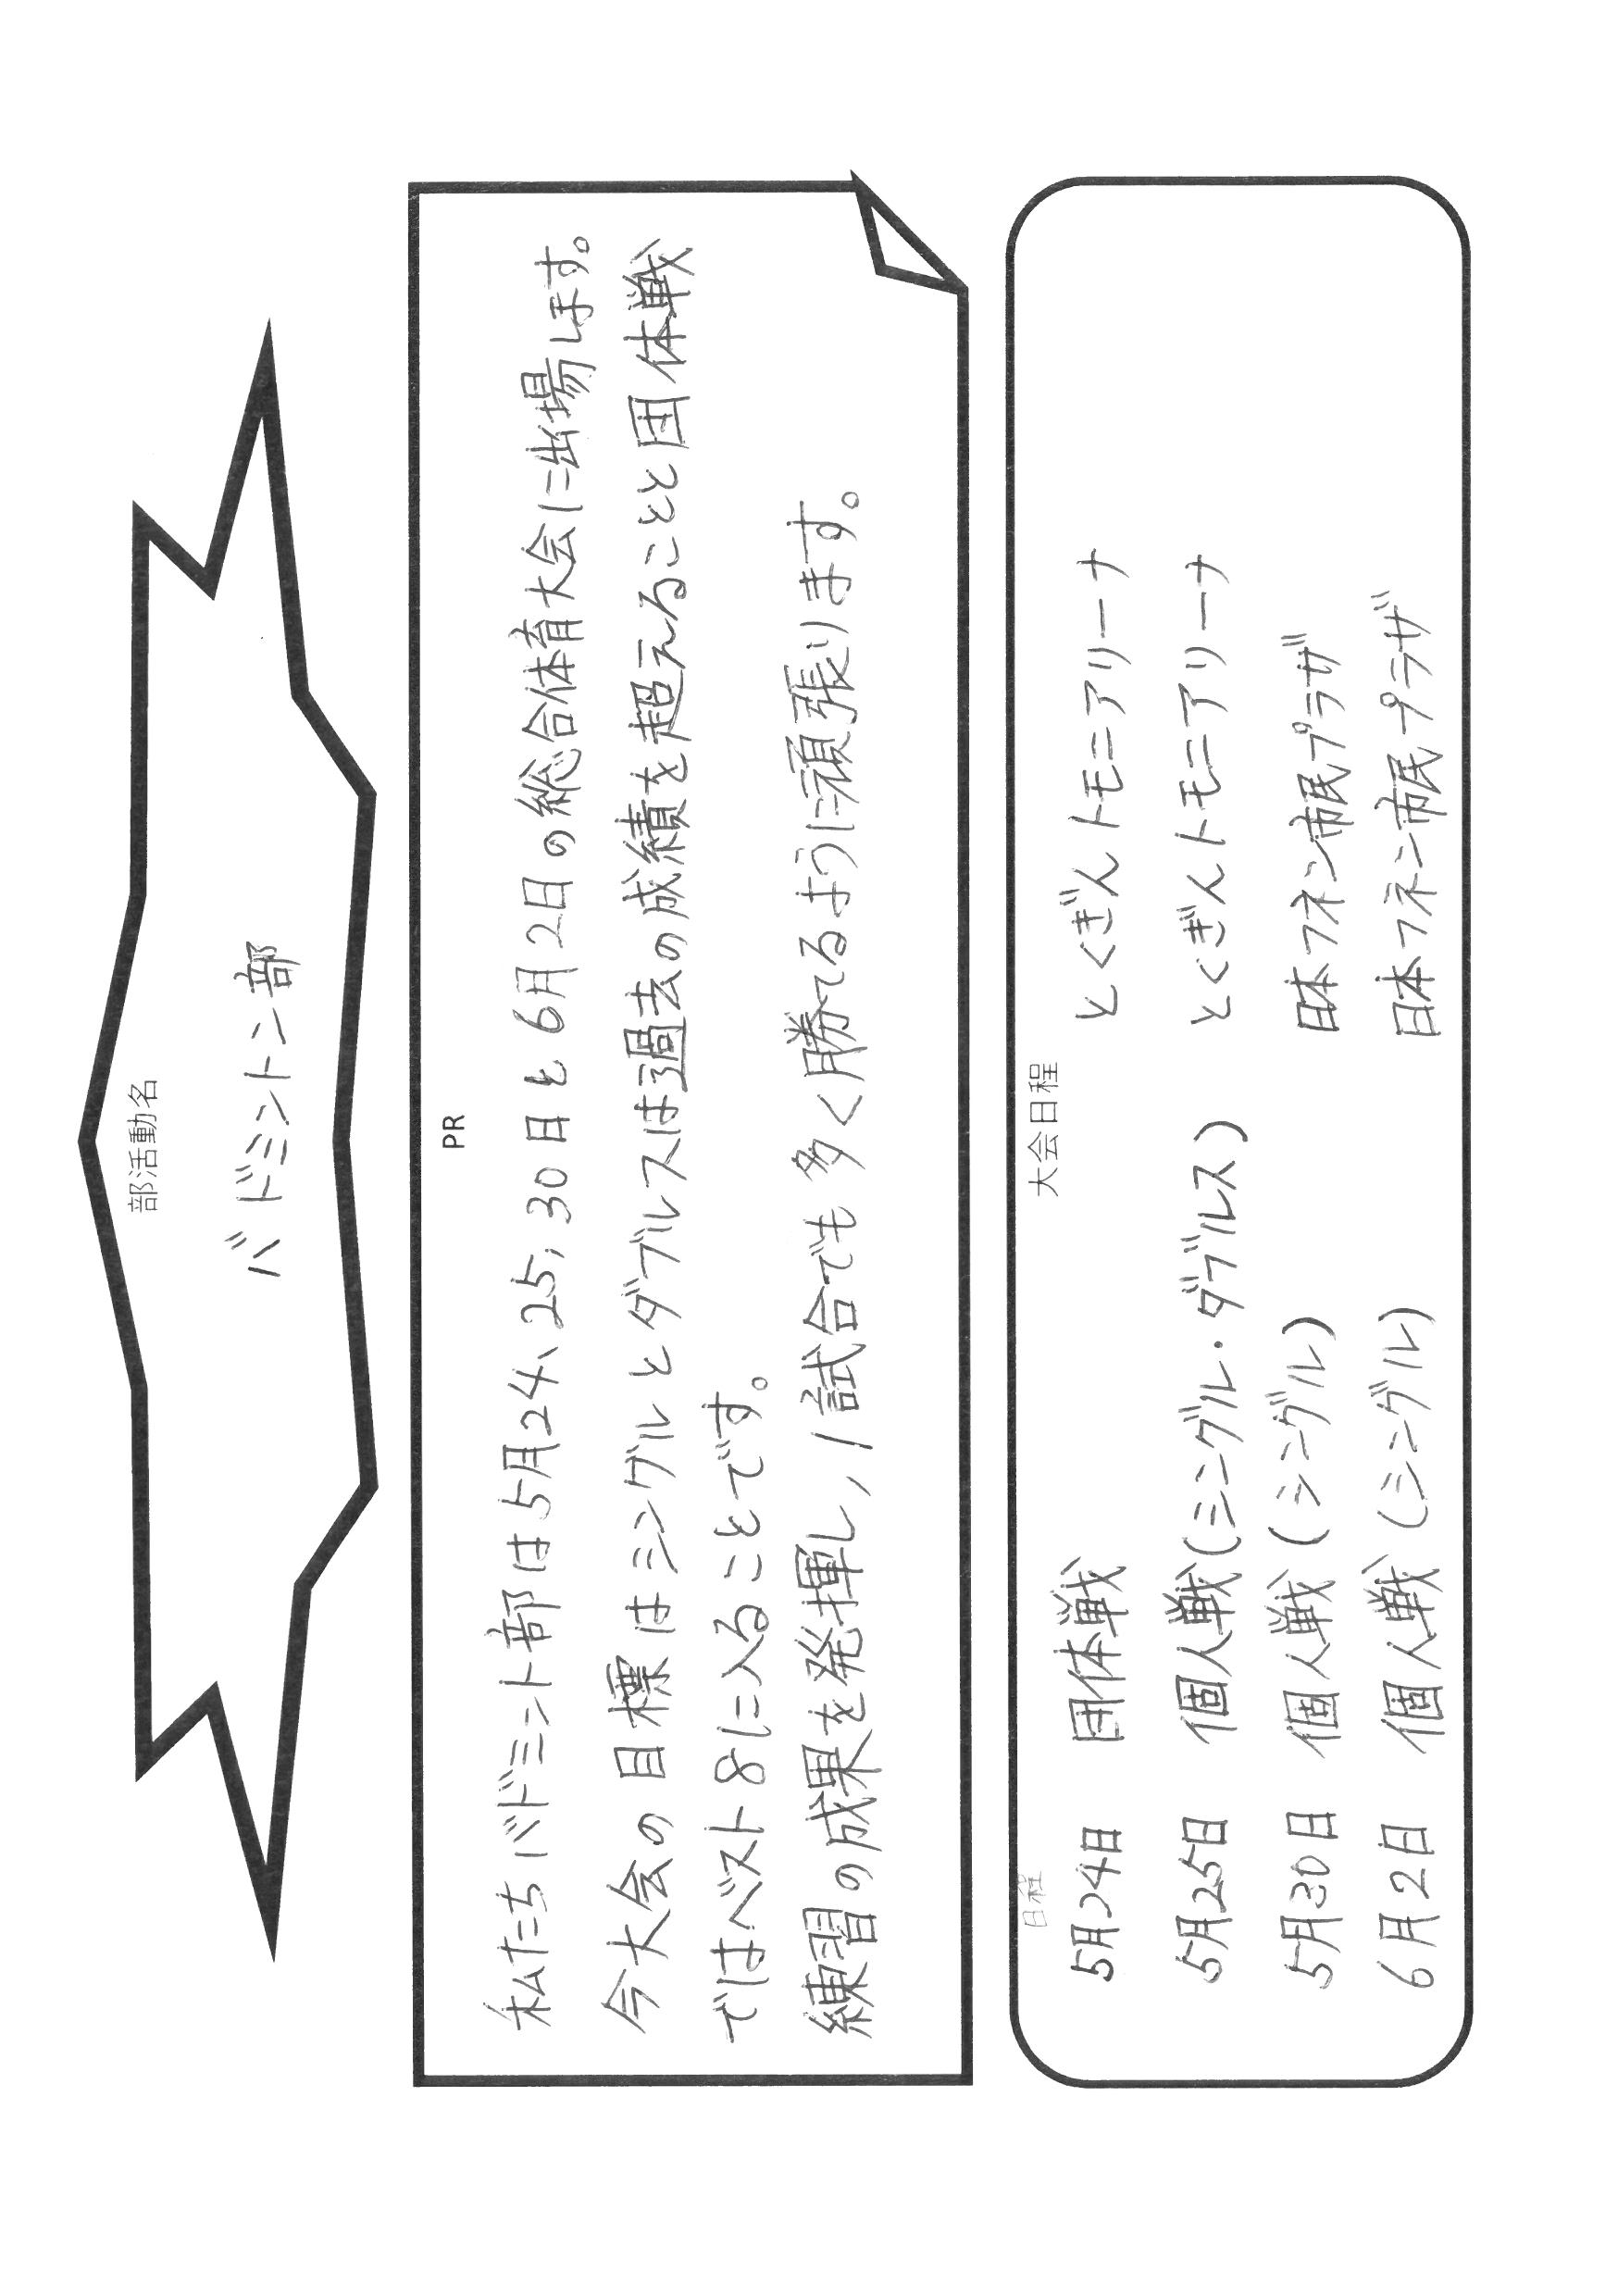 部活動名
バドミントン部
PR
私たちバドミント部は5月24、25、30日と6月2日の総合体育大会に出場します。
今大会の目標はシングルとダブルスは過去の成績を超えることと団体戦
ではベスト8に入ることです。
練習の成果を発揮し、1試合でも多く勝てるように頑張ります。
大会日程
日程
5月24日 団体戦 とくぎんトモニアリーナ
5月25日 個人戦(シングル・ダブルス) とくぎんトモニアリーナ
5月30日 個人戦(シングル) 日本フネン市民プラザ
6月2日 個人戦(シングル) 日本フネン市民プラザ